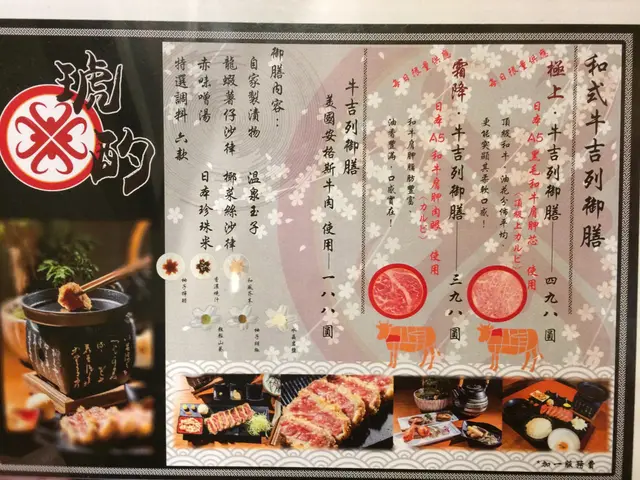 琥酌
和式牛吉列御膳
每日限量供應
極上·牛吉列御膳 四九八圓
日本A5黑毛和牛肩胛芯 使用
（頂級上カルビ）
頂級和牛，油花分佈平均
更能突顯其柔軟口感！
每日限量供應
霜降·牛吉列御膳 三九八圓
日本A5和牛肩胛肉眼 使用
（カルビ）
和牛肩胛脂肪豐富，
油香豐滿，口感實在！
牛吉列御膳
美國安格斯牛肉 使用 一八八圓
御膳內容：
自家製漬物 溫泉玉子
龍蝦薯仔沙律 椰菜絲沙律
赤味噌湯 日本珍珠米
特選調料 六款
*加一服務費